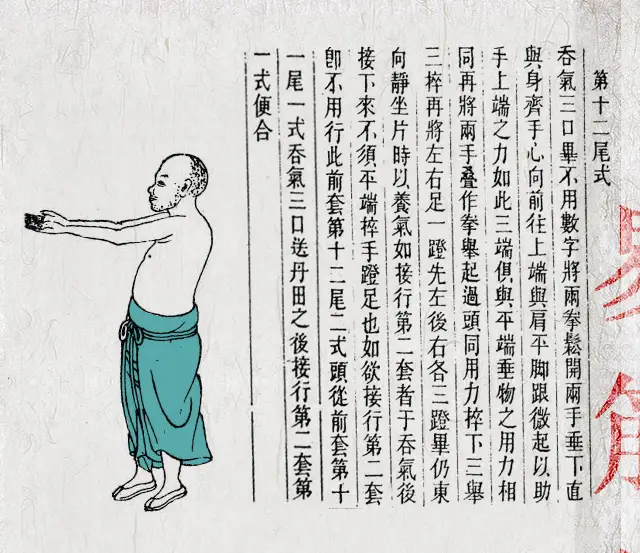 第十二尾式
吞氣三口畢不用數字將兩拳鬆開兩手垂下直
與身齊手心向前往上端與肩平脚跟微起以助
手上端之力如此三端俱與平端垂物之用力相
同再將兩手叠作拳舉起過頭同用力摔下三舉
三摔再將左右足一蹬先左後右各三蹬畢仍東
向靜坐片時以養氣如接行第二套者于吞氣後
接下來不須平端摔手蹬足也如欲接行第二套
卽不用行此前套第十二尾二式頭從前套第十
一尾一式吞氣三口送丹田之後接行第二套第
一式便合
易